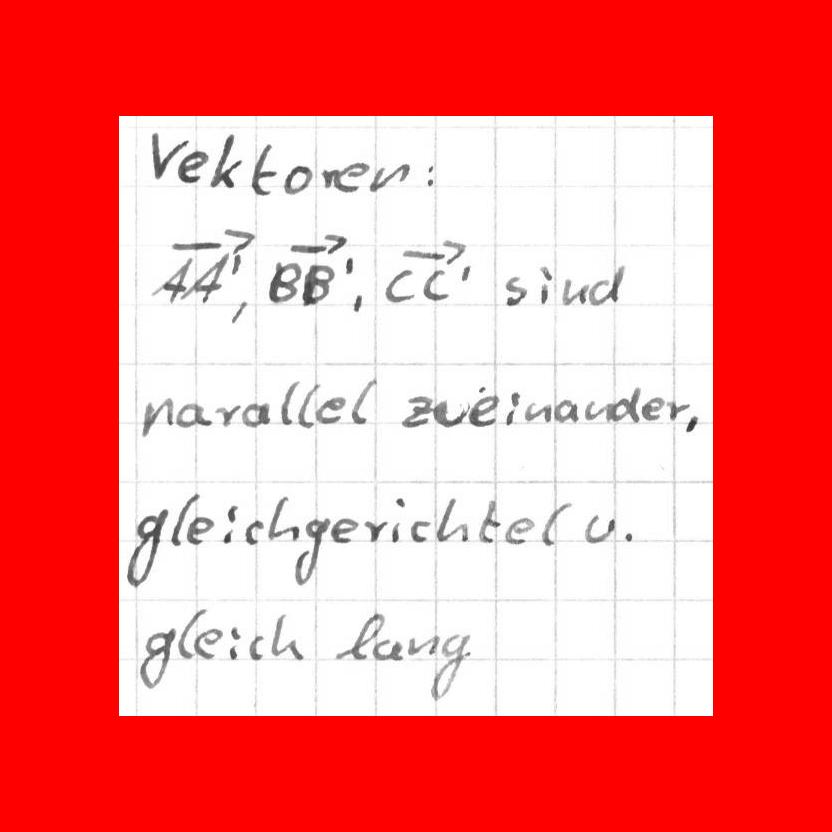 Vektoren:
AA', BB', CC' sind
parallel zueinander,
gleichgerichtet u.
gleich lang